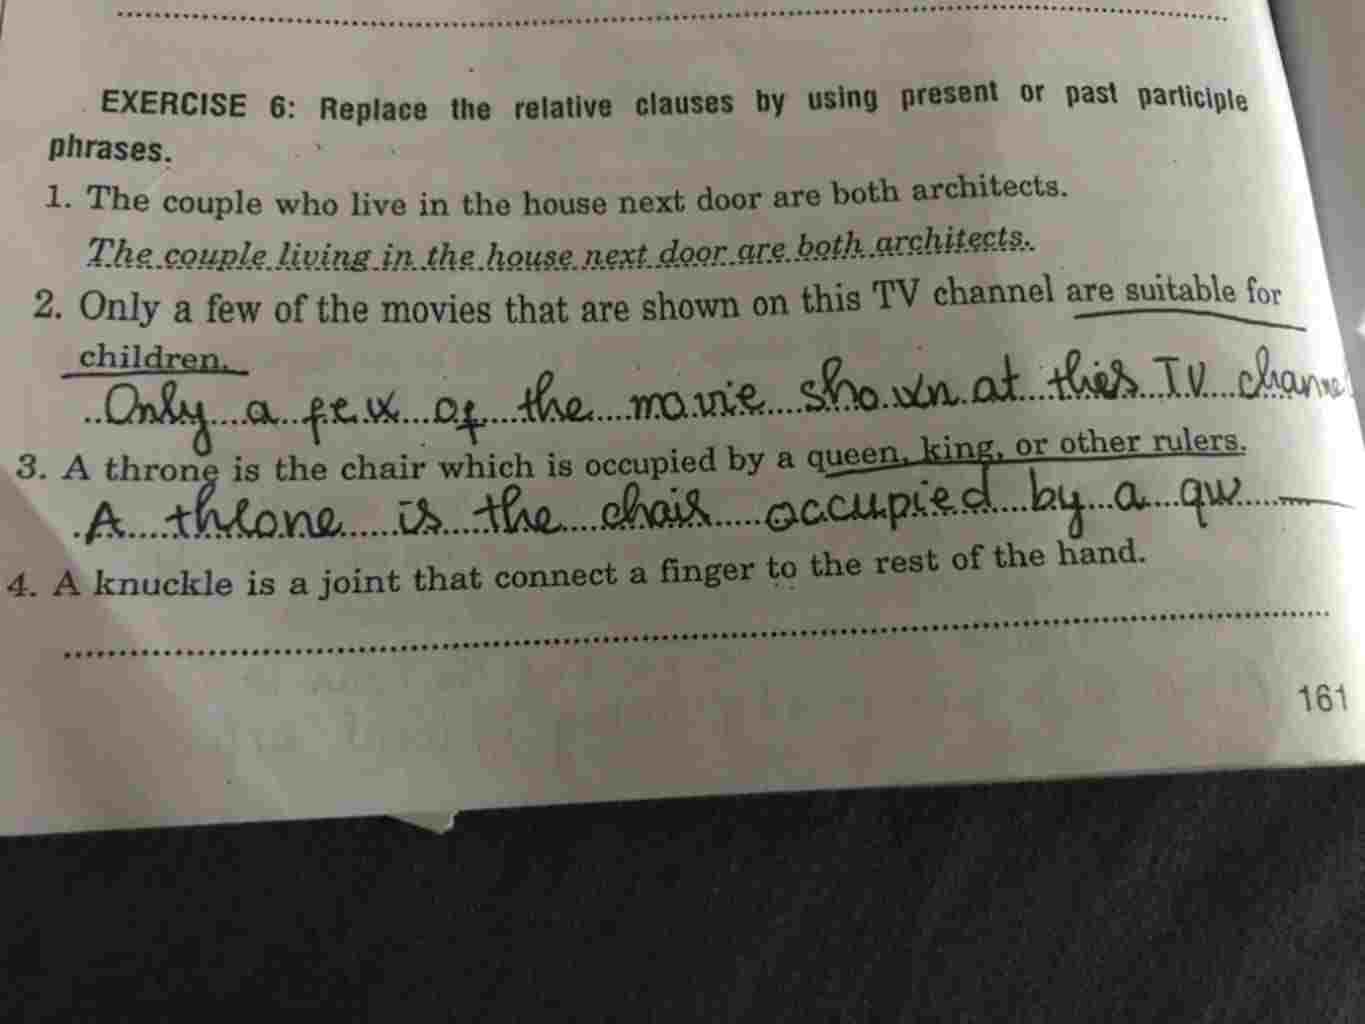 EXERCISE 6: Replace the relative clauses by using present or past participle
phrases.
1. The couple who live in the house next door are both architects.
The couple living in the house next door are both architects.
2. Only a few of the movies that are shown on this TV channel are suitable for
children.
Only a few of the movie shown at this TV channel
3. A throne is the chair which is occupied by a queen, king, or other rulers.
A throne is the chair occupied by a qu
4. A knuckle is a joint that connect a finger to the rest of the hand.
161